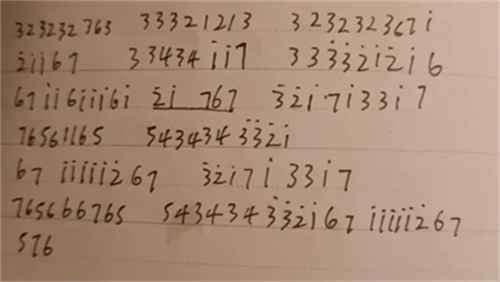 323232763 33321213 3232323671̇
2̇1̇1̇67 334341̇1̇7 333̇3̇2̇1̇2̇16
671̇1̇61̇1̇1̇61̇ 2̇1̇ 767 3̇2̇1̇·71̇331̇7
76561165 5434343̇3̇2̇1̇
67 1̇1̇1̇1̇1̇2̇67 3̇2̇1̇71̇ 331̇7
765666765 5434343̇3̇2̇1̇67 1̇1̇1̇1̇1̇2̇67
576